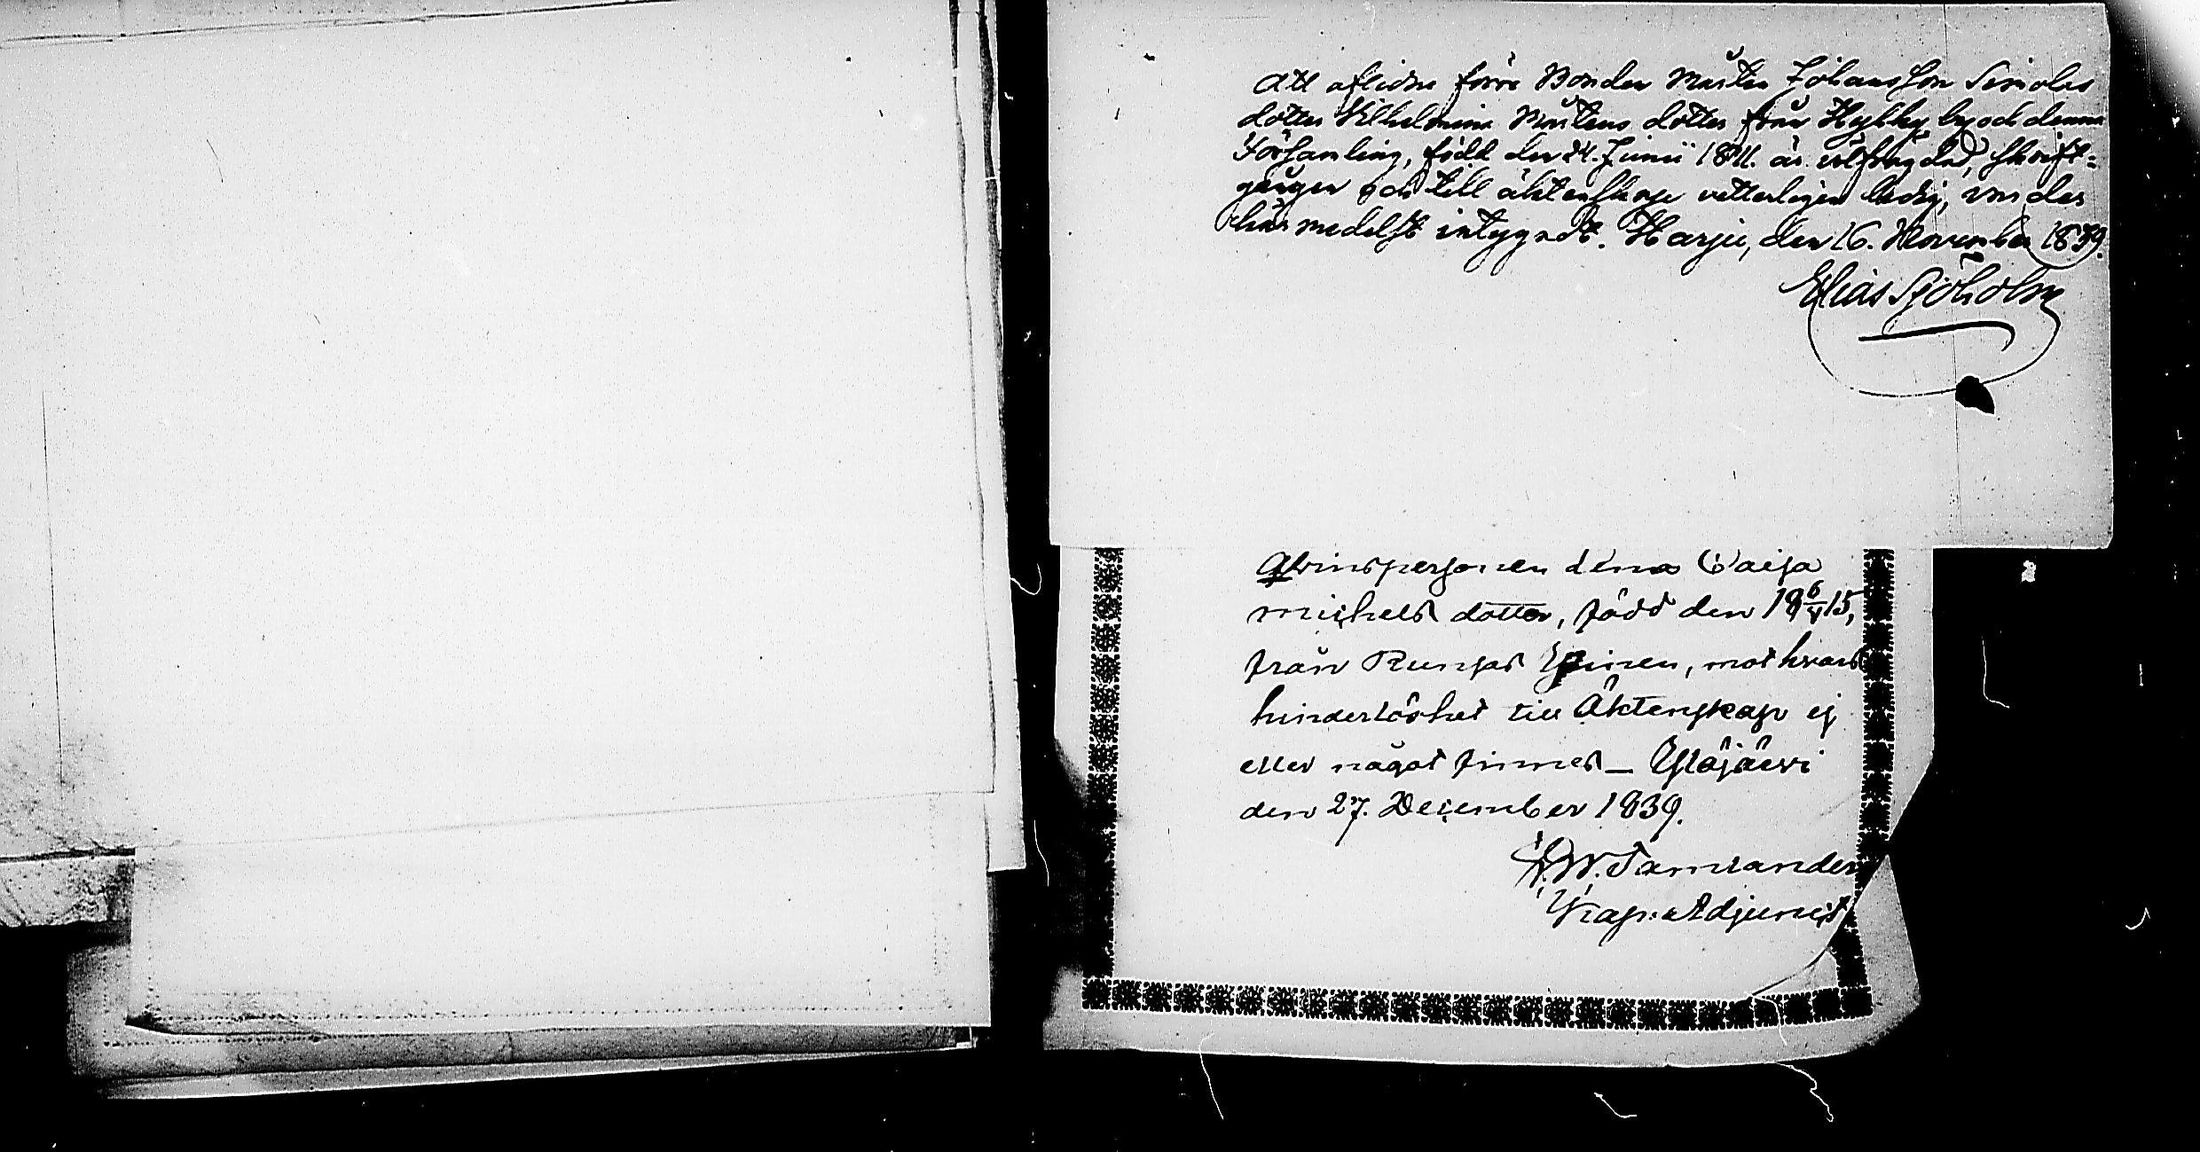 Att aflidne förre Bonden Mårten Johansson Siriolas
dotter Wilhelmina Mårtens dotter från Hyhky by och denna
Församling, född den 24. Junii 1811. är välfrägdad, skrift=
gången och till äktenskap vetterligen ledig, varder
härmedelst intygadt. Harju, den 16. November 1839.
Elias Sjöholm
Qvinspersonen Lena Caisa
Michels dotter, född den 18 6/V 15,
från Runsas , mot hvars
hinderlöshet till Äktenskap ej
eller något finnes_ Ylöjärvi
den 27. December 1839.
F.W. Tamlander
Kap: Adjunct